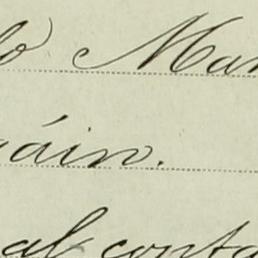 lo Man
áin.
al conta